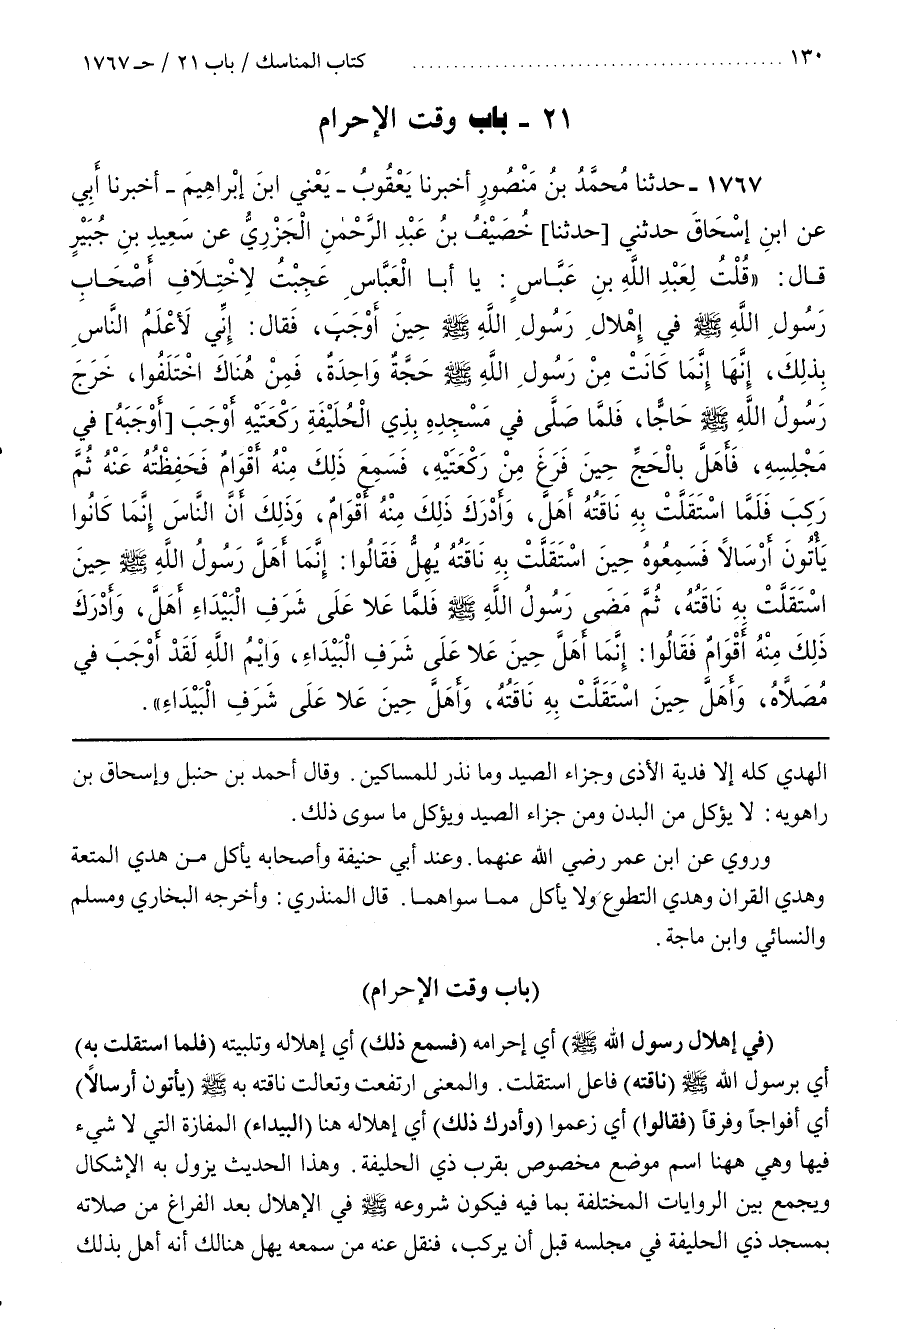 ١٣٠ ............................................. كتاب المناسك / باب ٢١ / حـ ١٧٦٧
٢١ - باب وقت الإحرام
١٧٦٧ - حدثنا مُحمَّدُ بنُ مَنْصُورٍ أخبرنا يَعْقُوبُ - يَعْني ابنَ إبْراهِيمَ - أخبرنا أَبِي
عن ابنِ إِسْحَاقَ حدثني [حدثنا] خُصَيْفُ بنُ عَبْدِ الرَّحْمٰنِ الْجَزْرِيُّ عن سَعِيدِ بنِ جُبَيْرٍ
قـال: «قُلْتُ لِعَبْدِ اللَّهِ بنِ عَبَّـاسٍ: يا أبـا الْعَبَّاسِ عَجِبْتُ لِاخْتِـلَافِ أَصْحَـابِ
رَسُولِ اللَّهِ ﷺ في إِهْلالِ رَسُولِ اللَّهِ ﷺ حِينَ أَوْجَبَ، فَقال: إِنِّي لَأعْلَمُ النَّاسِ
بِذلِكَ، إِنَّهَا إِنَّمَا كَانَتْ مِنْ رَسُولِ اللَّهِ ﷺ حَجَّةٌ وَاحِدَةٌ، فَمِنْ هُنَاكَ اخْتَلَفُوا، خَرَجَ
رَسُولُ اللَّهِ ﷺ حَاجًّا، فَلمَّا صَلَّى في مَسْجِدِهِ بِذِي الْحُلَيْفَةِ رَكْعَتَيْهِ أَوْجَبَ [أَوْجَبَهُ] في
مَجْلِسِهِ، فَأَهَلَّ بالْحَجِّ حِينَ فَرَغَ مِنْ رَكْعَتَيْهِ، فَسَمِعَ ذَلِكَ مِنْهُ أَقْوَامٌ فَحَفِظْتُهُ عَنْهُ ثُمَّ
رَكِبَ فَلَمَّا اسْتَقَلَّتْ بِهِ نَاقَتُهُ أَهَلَّ، وَأَدْرَكَ ذَلِكَ مِنْهُ أَقْوَامٌ، وَذَلِكَ أَنَّ النَّاسَ إِنَّمَا كَانُوا
يَأْتُونَ أَرْسَالاً فَسَمِعُوهُ حِينَ اسْتَقَلَّتْ بِهِ نَاقَتُهُ يُهِلُّ فَقَالُوا: إِنَّمَا أَهَلَّ رَسُولُ اللَّهِ ﷺ حِينَ
اسْتَقَلَّتْ بِهِ نَاقَتُهُ، ثُمَّ مَضَى رَسُولُ اللَّهِ ﷺ فَلمَّا عَلا عَلَى شَرَفِ الْبَيْدَاءِ أَهَلَّ، وَأَدْرَكَ
ذَلِكَ مِنْهُ أَقْوَامٌ فَقَالُوا: إِنَّمَا أَهَلَّ حِينَ عَلا عَلَى شَرَفِ الْبَيْدَاءِ، وَايْمُ اللَّهِ لَقَدْ أَوْجَبَ في
مُصَلاَّهُ، وَأَهَلَّ حِينَ اسْتَقَلَّتْ بِهِ نَاقَتُهُ، وَأَهَلَّ حِينَ عَلا عَلَى شَرَفِ الْبَيْدَاءِ».
الهدي كله إلا فدية الأذى وجزاء الصيد وما نذر للمساكين. وقال أحمد بن حنبل وإسحاق بن
راهويه: لا يؤكل من البدن ومن جزاء الصيد ويؤكل ما سوى ذلك.
وروي عن ابن عمر رضي الله عنهما. وعند أبي حنيفة وأصحابه يأكل مـن هدي المتعة
وهدي القران وهدي التطوع ولا يأكل ممـا سواهمـا. قال المنذري: وأخرجه البخاري ومسلم
والنسائي وابن ماجة.
(باب وقت الإحرام)
(في إهلال رسول الله ﷺ) أي إحرامه (فسمع ذلك) أي إهلاله وتلبيته (فلما استقلت به)
أي برسول الله ﷺ (ناقته) فاعل استقلت. والمعنى ارتفعت وتعالت ناقته به ﷺ (يأتون أرسالاً)
أي أفواجاً وفرقاً (فقالوا) أي زعموا (وأدرك ذلك) أي إهلاله هنا (البيداء) المفازة التي لا شيء
فيها وهي ههنا اسم موضع مخصوص بقرب ذي الحليفة. وهذا الحديث يزول به الإشكال
ويجمع بين الروايات المختلفة بما فيه فيكون شروعه ﷺ في الإهلال بعد الفراغ من صلاته
بمسجد ذي الحليفة في مجلسه قبل أن يركب، فنقل عنه من سمعه يهل هنالك أنه أهل بذلك